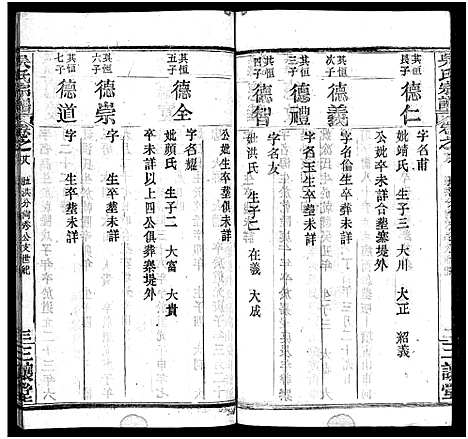 其恒長子 德仁 字名甫
妣靖氏 生子三 大川 大正 紹義
公妣卒未詳合塟寨堤外
其恒次子 德義 字名倫生卒葬未詳
其恒三子 德禮 字名玉生卒塟未詳
其恒四子 德智 字名友
妣洪氏 生子二 在義 大成
公妣生卒塟未詳
其恒五子 德全 字名耀
妣顏氏 生子二 大富 大貴
卒未詳以上四公俱葬寨堤外
其恒六子 德崇 字 生卒塟未詳
其恒七子 德道 字 生卒塟未詳
吳氏宗譜 卷之
三讓堂